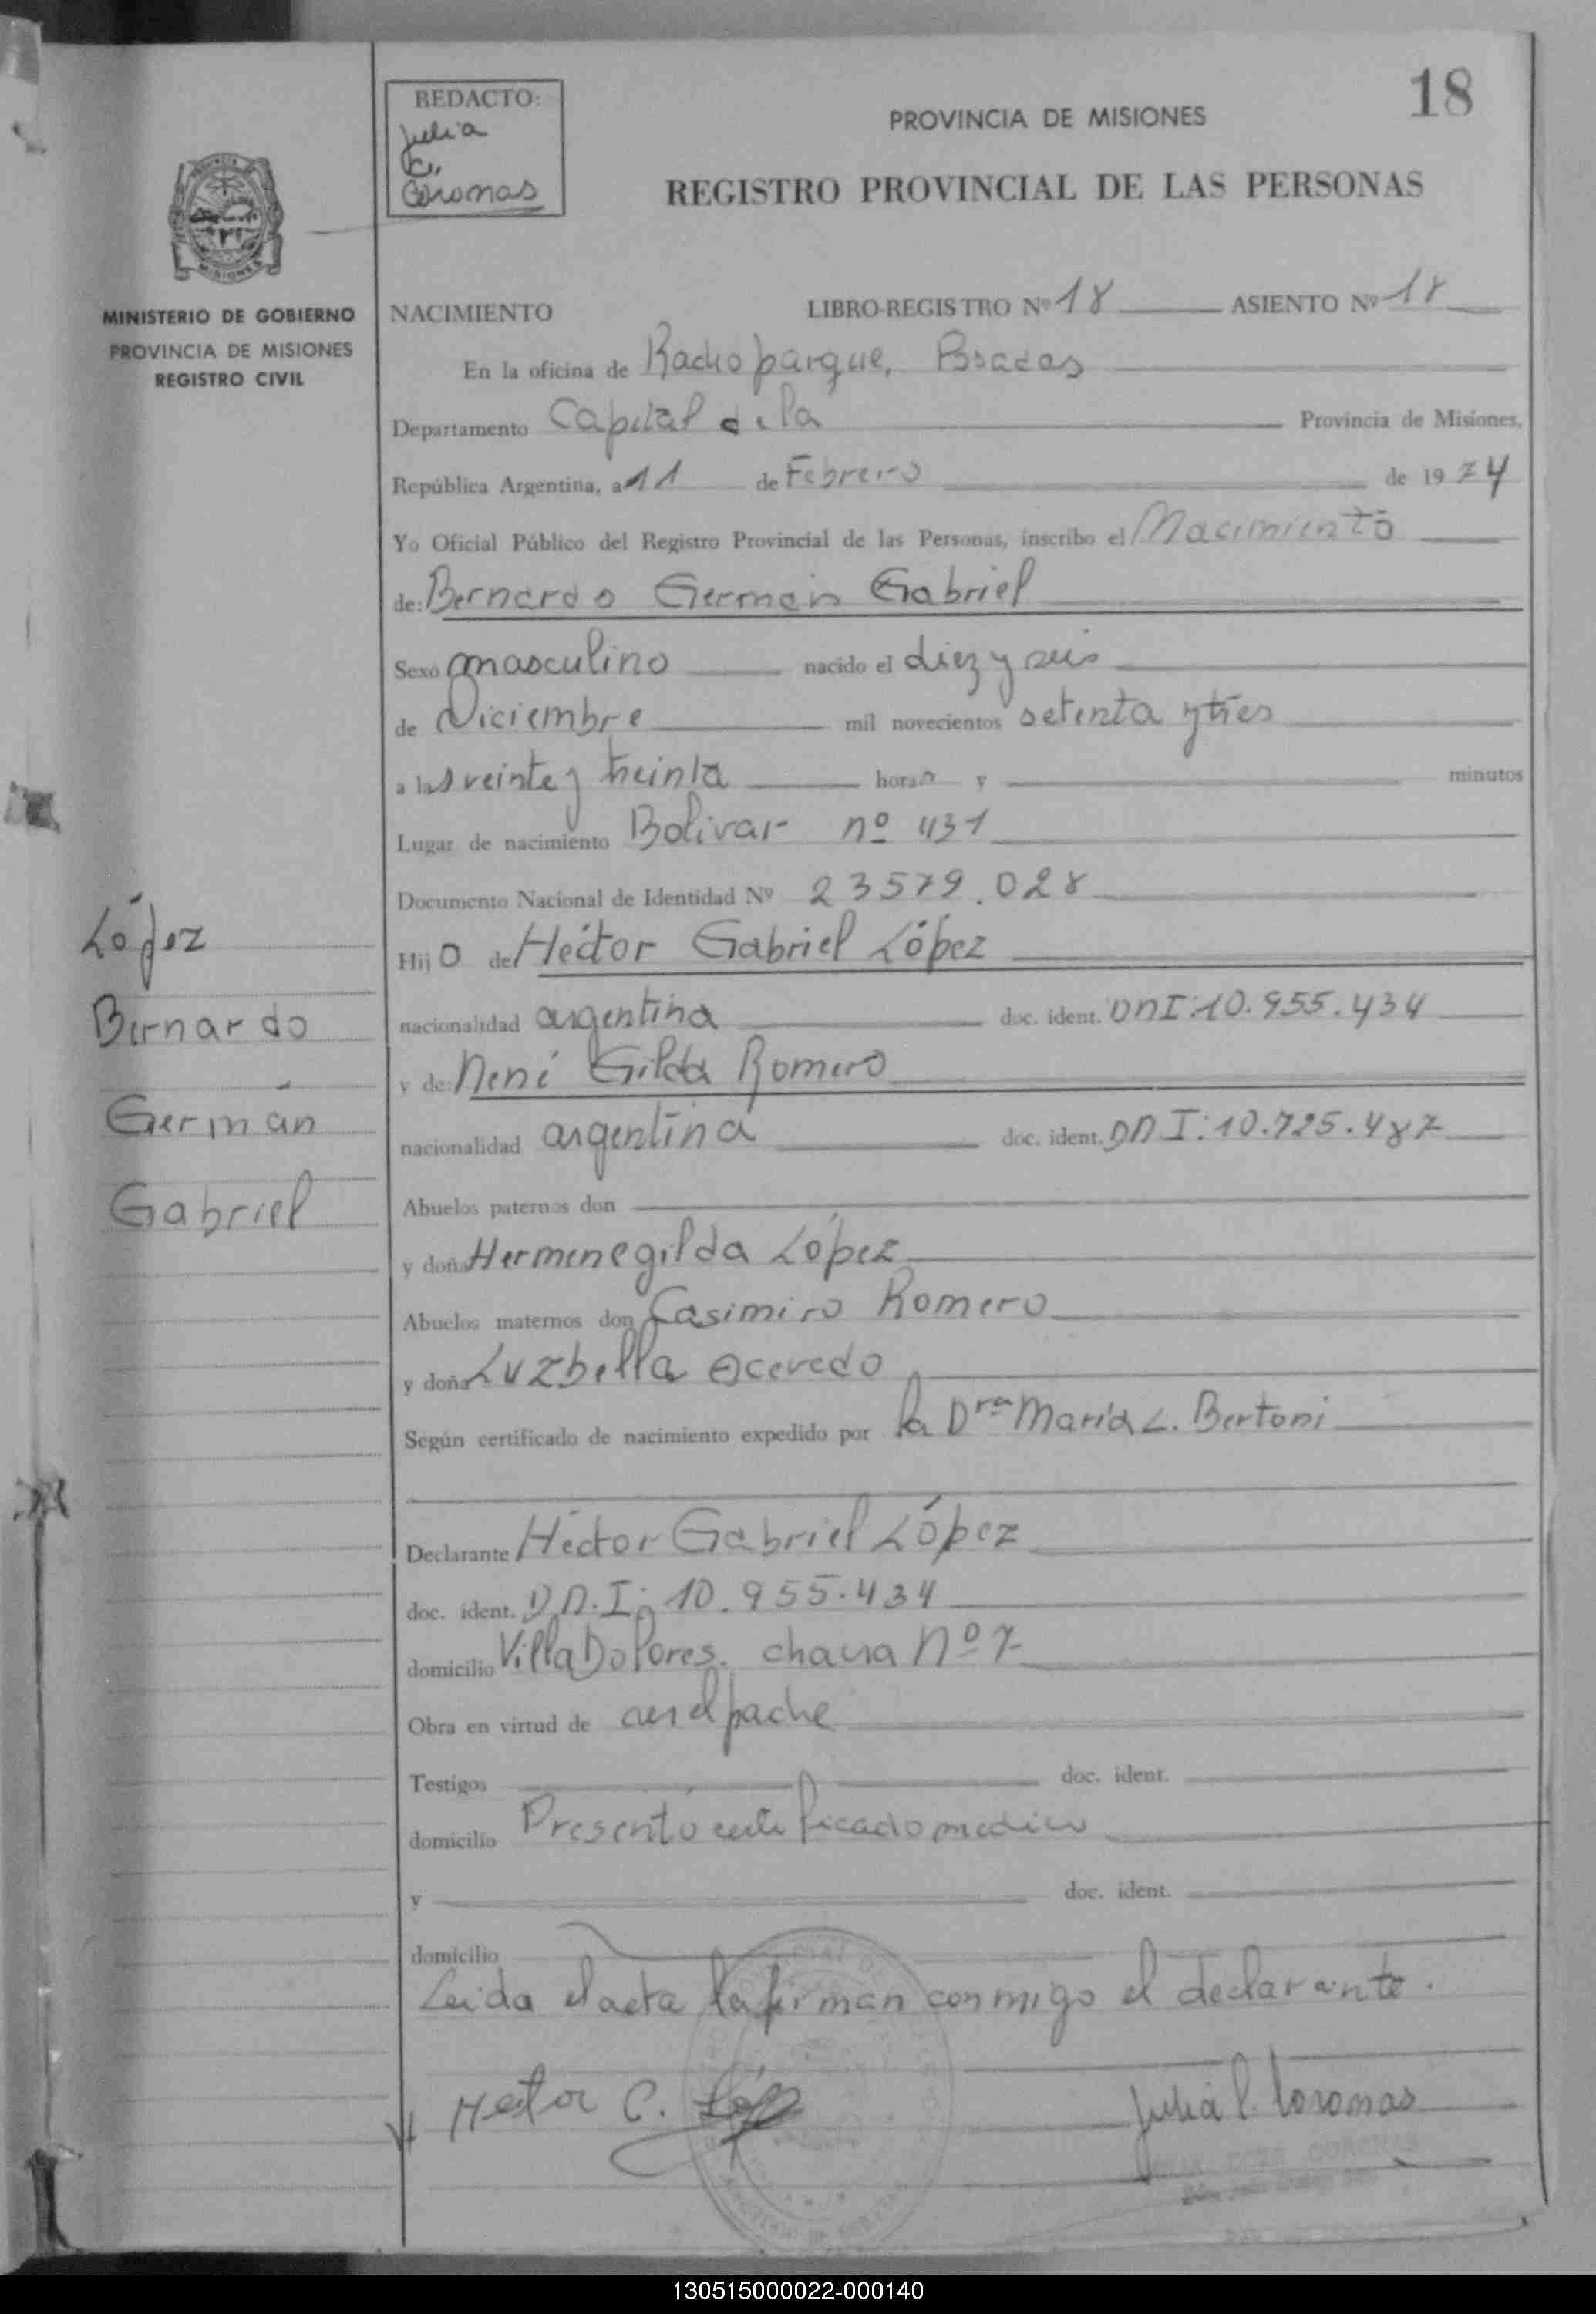 18
REDACTO:
Julia
C.
Coromas
PROVINCIA DE MISIONES
REGISTRO PROVINCIAL DE LAS PERSONAS
PROVINCIA DE
MISIONES
MINISTERIO DE GOBIERNO
PROVINCIA DE MISIONES
REGISTRO CIVIL
NACIMIENTO LIBRO-REGISTRO Nº 18 ASIENTO Nº 18
En la oficina de Radioparque, Posadas
Departamento Capital de la Provincia de Misiones,
República Argentina, a 11 de Febrero de 1974
Yo Oficial Público del Registro Provincial de las Personas, inscribo el Nacimiento
de: Bernardo Germán Gabriel
Sexo masculino nacido el diez y seis
de Diciembre mil novecientos setenta y tres
a las veinte y treinta horas y minutos
Lugar de nacimiento Bolivar nº 431
Documento Nacional de Identidad Nº 23579.028
López
Bernardo
Germán
Gabriel
Hijo de Héctor Gabriel López
nacionalidad argentina doc. ident. DNI: 10.955.434
y de: Nené Gilda Romero
nacionalidad argentina doc. ident. DNI: 10.725.487
Abuelos paternos don
y doña Hermenegilda López
Abuelos maternos don Casimiro Romero
y doña Luzbella Acevedo
Según certificado de nacimiento expedido por la Dra María L. Bertoni
Declarante Héctor Gabriel López
doc. ident. D.N.I: 10.955.434
domicilio Villa Dolores. chacra Nº 7
Obra en virtud de ser el padre
Testigos doc. ident.
domicilio Presentó certificado medico
y doc. ident.
domicilio
Leida el acta la firman conmigo el declarante.
Hector C. López
Julia C. Coromas
130515000022-000140